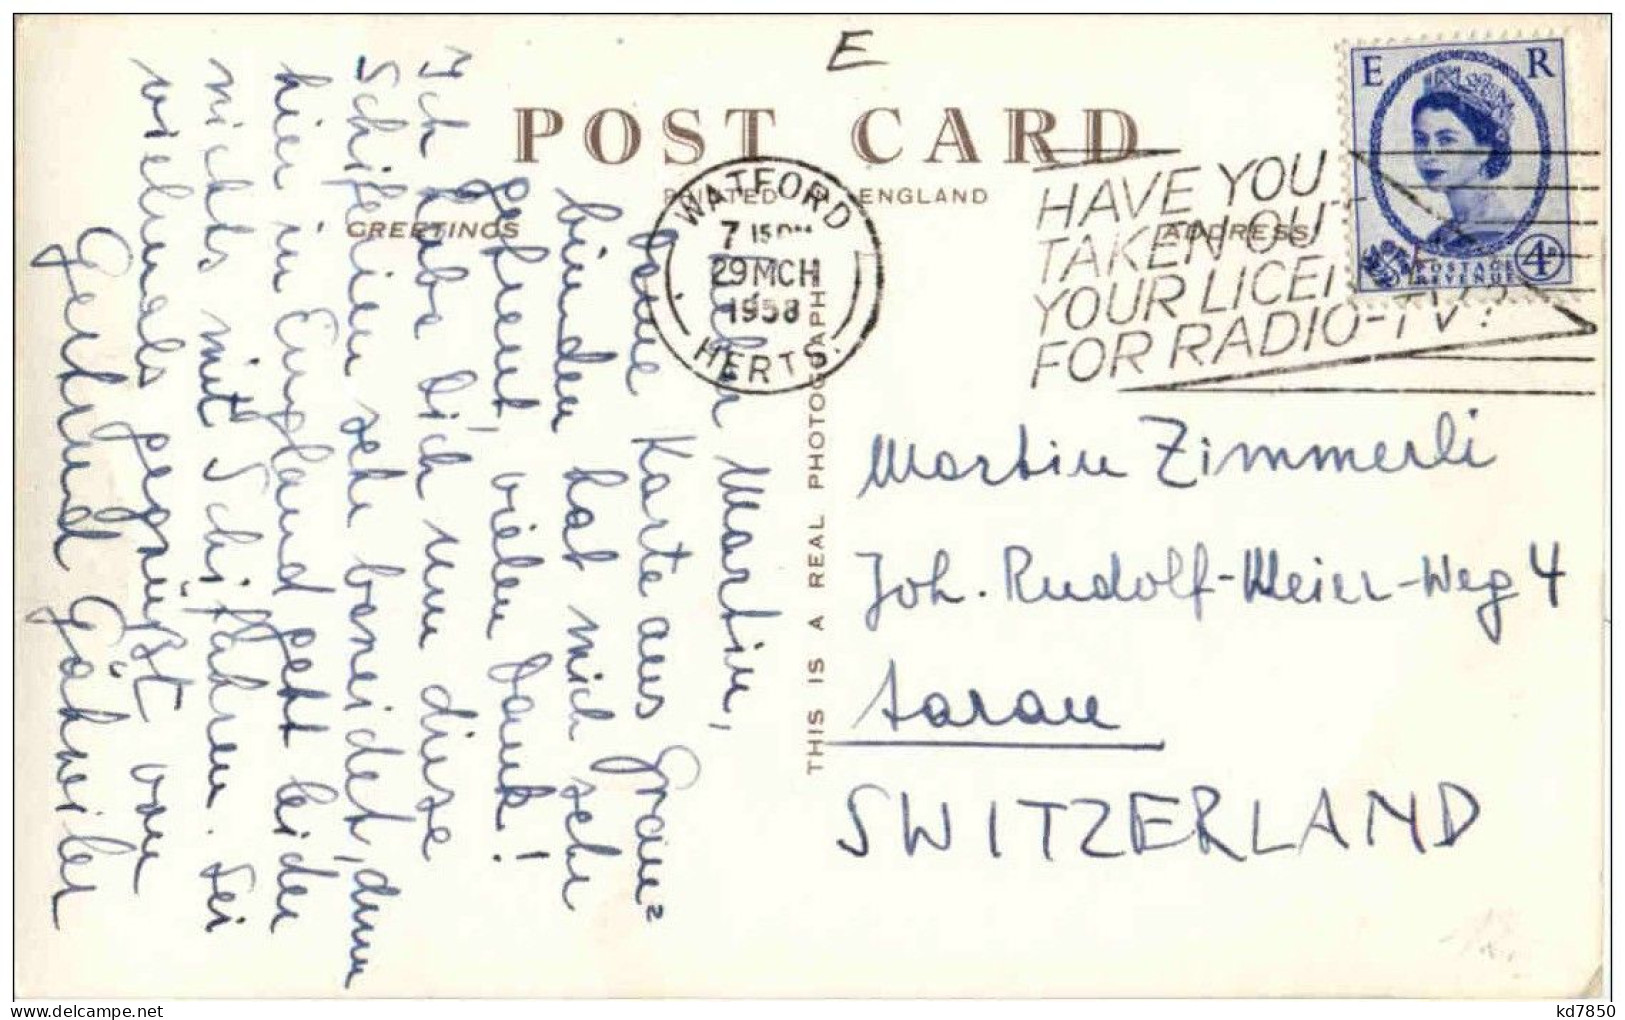 E
POST CARD
PRINTED IN ENGLAND
GREETINGS
ADDRESS
WATFORD
7 15 PM
29 MCH
1958
HERTS.
HAVE YOU
TAKEN OUT
YOUR LICENCE
FOR RADIO-TV?
E R
POSTAGE
REVENUE
4D
THIS IS A REAL PHOTOGRAPH
Lieber Martin,
Deine Karte aus Grau²
bünden hat mich sehr
gefreut, vielen Dank!
Ich habe Dich um diese
Schiferien sehr beneidet, denn
hier in England geht leider
nichts mit Schifahren. Sei
vielmals gegrüsst von
Gertrud Gähwiler
Martin Zimmerli
Joh. Rudolf-Meier-Weg 4
Aarau
SWITZERLAND
kd7850